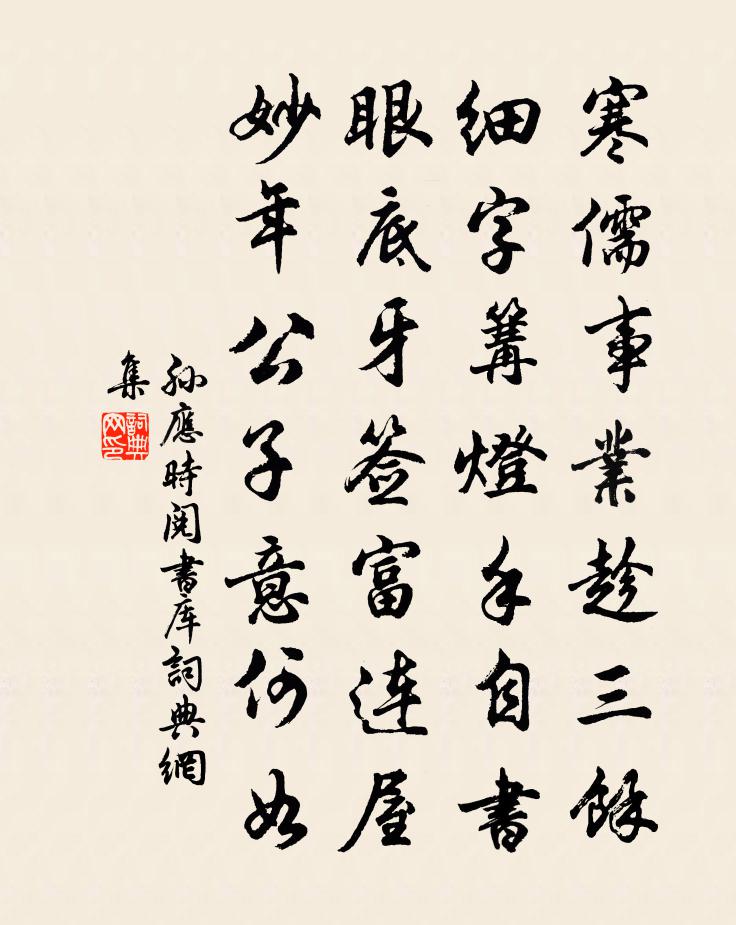 寒儒事業趁三餘
細字篝燈手自書
眼底牙签富連屋
妙年公子意何如
孫應時阅書库詞典網
集
詞典网印